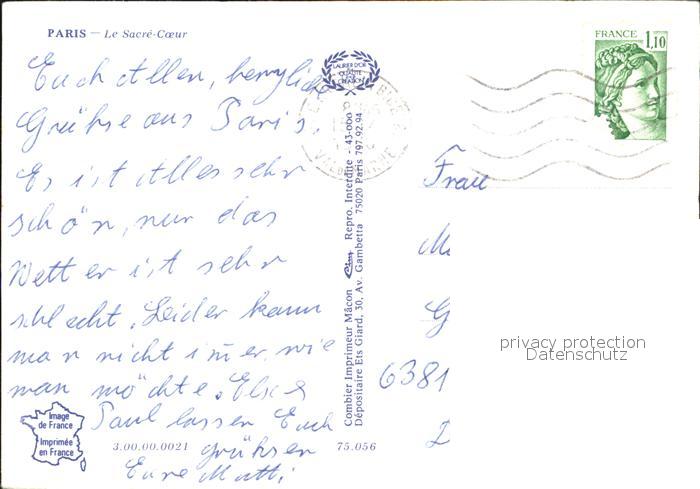 PARIS — Le Sacré-Cœur
Euch Allen, herzliche
Grühse aus Paris.
Es ist Alles sehr
schön, nur das
Wetter ist sehr
schlecht. Leider kann
man nicht im̄er wie
man möchte. Elsi &
Paul lassen Euch
grühsen
Eure Mutti
LAURIER D'OR
QUALITÉ
CREATION
Combier Imprimeur Mâcon Cim Repro. Interdite - 43-000
Dépositaire Ets Giard, 30, Av. Gambetta 75020 Paris 797.92.94
FRANCE 1,10
Frau
M
G
6381
privacy protection
Datenschutz
Image
de France
Imprimée
en France
3.00.00.0021 75.056